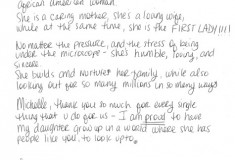 african american woman.
She is a caring mother, she's a loving wife,
while at the same time, she is the FIRST LADY!!!!
No matter the pressure, and the stress of being
under the microscope - she's humble, loving, and
sincere.
She builds and nurtures her family, while also
looking out for so many millions in so many ways
Michelle, thank you so much for every single
thing that u do for us - I am proud to have
my daughter grow up in a world where she has
people like you, to look up to.